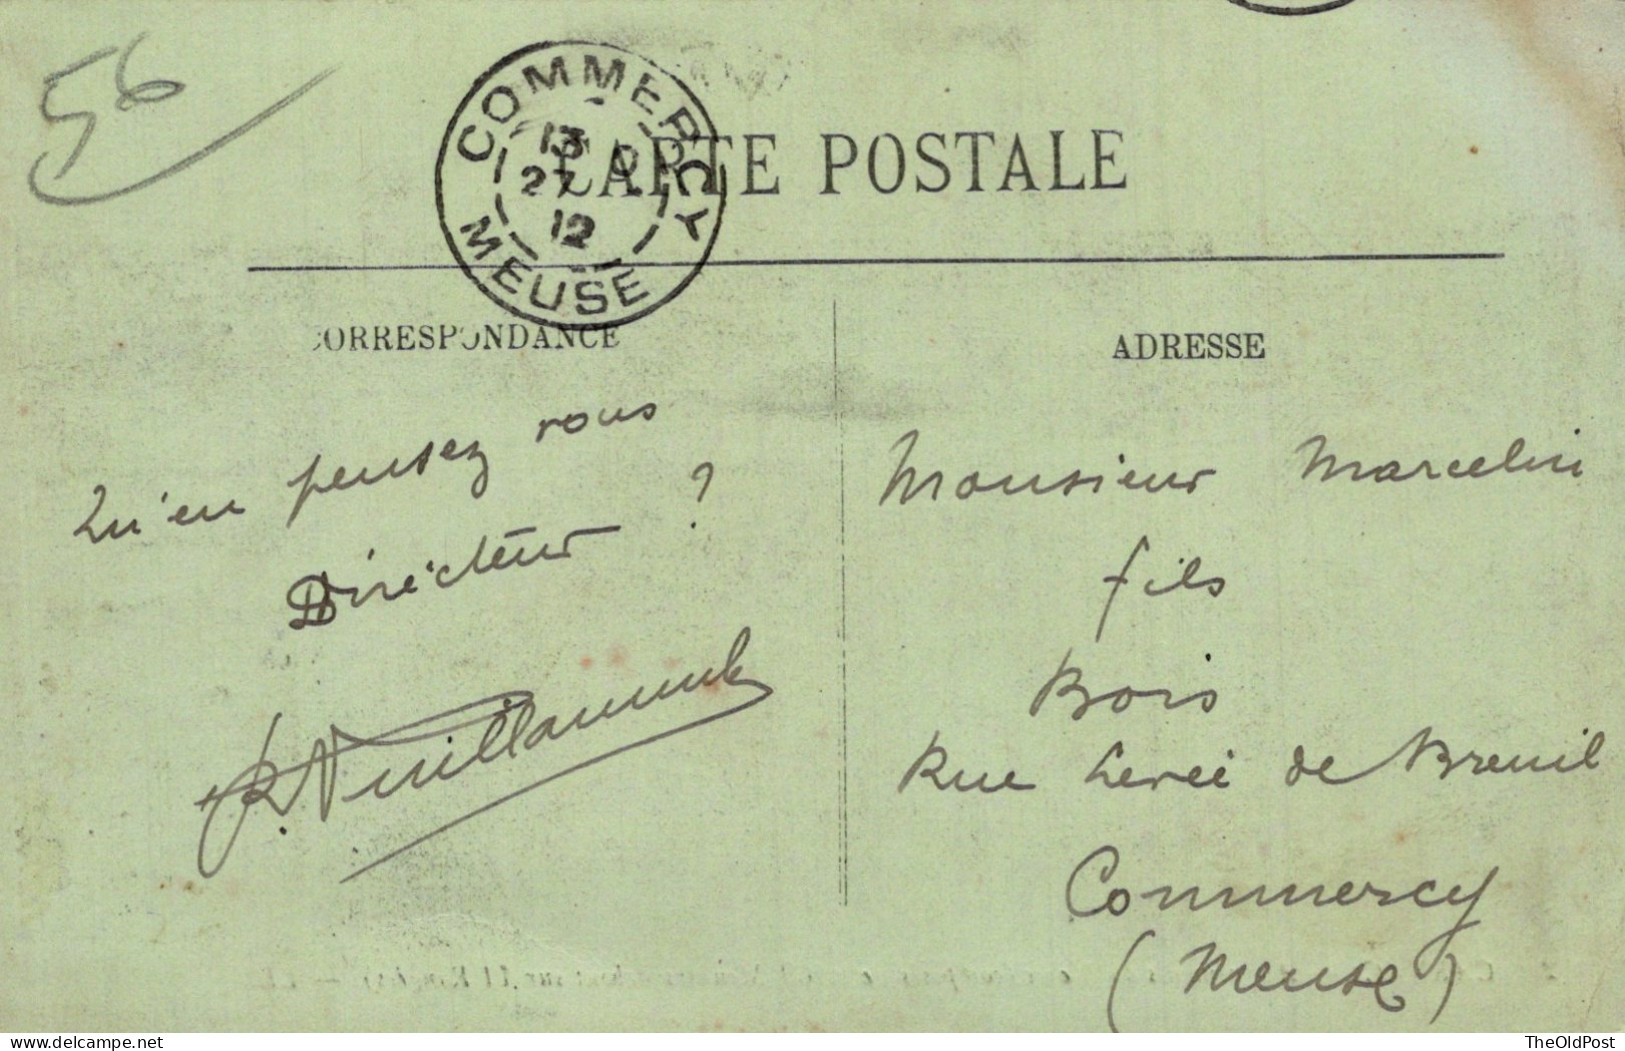 56
COMMERCY
13
27
12
MEUSE
CARTE POSTALE
CORRESPONDANCE
ADRESSE
Qu'en pensez vous
Directeur ?
Vuillaume
Monsieur Marcelin
fils
Bois
Rue Levée de Breuil
Commercy
(Meuse)
www.delcampe.net
TheOldPost